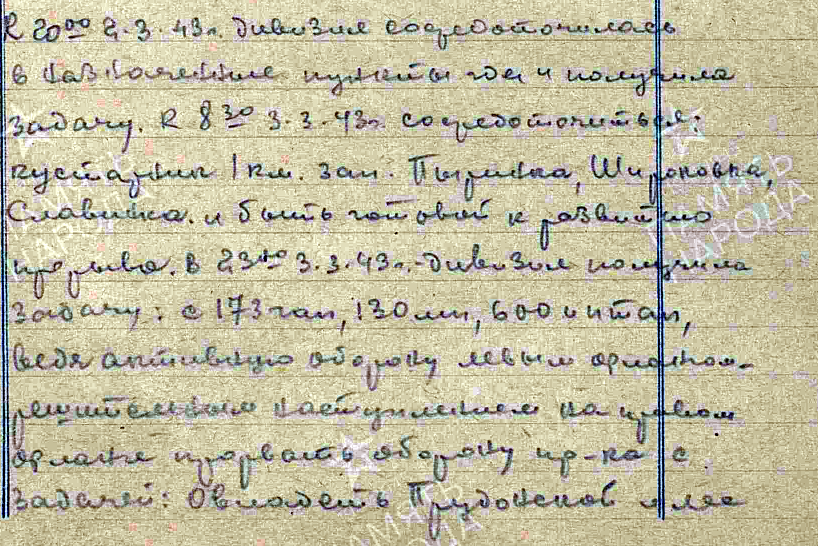 К 20⁰⁰ 2.3.43г. дивизия сосредоточилась
в назначенные пункты где и получила
задачу. К 8³⁰ 3.3.43г. сосредоточиться:
кустарник 1 км. зап. Пыринка, Широковка,
Славинка. и быть готовой к развитию
прорыва. В 23⁴⁰ 3.3.43г.-дивизия получила
задачу: с 173 гап, 130 мп, 600 иптап,
ведя активную оборону левым флангом-
решительным наступлением на правом
фланге прорвать оборону пр-ка с
задачей: Овладеть Прудонской и лес
ПАМЯТЬ НАРОДА
ПАМЯТЬ НАРОДА
ПАМЯТЬ
ПАМЯТЬ